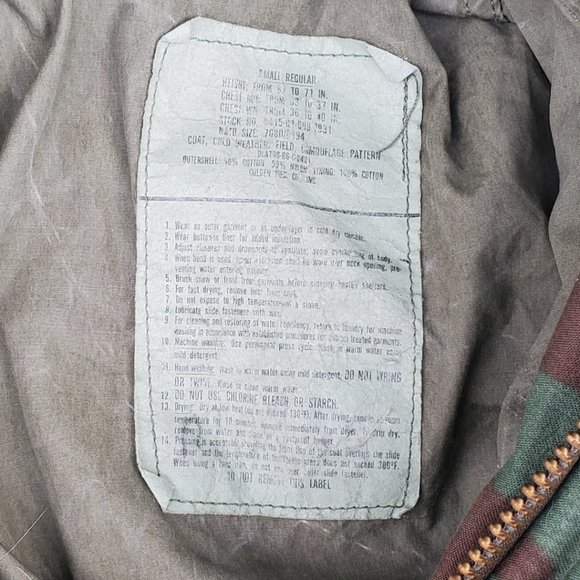 SMALL REGULAR
HEIGHT: FROM 67 TO 71 IN.
CHEST MIN. FROM 33 TO 37 IN.
STOCK NO. 8415-01-099-7831
NATO SIZE: 7080/8494
COAT, COLD WEATHER, FIELD, CAMOUFLAGE PATTERN
OUTERSHELL: 50% COTTON 50% NYLON LINING: 100% COTTON
1. Wear as outer garment or as under-layer in cold dry climate.
2. Wear button-in liner for added insulation.
3. Adjust closures and drawcords to ventilate; avoid overheating of body.
4. When hood is used, hood should be worn over neck opening, pre-
venting water entering
5. Brush snow or frost from garments before entering heated shelters.
6. For fast drying, remove liner from coat.
7. Do not expose to high temperature of a stove.
8. Lubricate slide fasteners with wax.
9. For cleaning and restoring of water repellency, return to laundry for machine
washing in accordance with established procedures for quarpel treated garments.
10. Machine washing: Use permanent press cycle. Wash in warm water using
mild detergent.
11. Hand washing: Wash in warm water using mild detergent. DO NOT WRING
OR TWIST. Rinse in clean warm water.
12. DO NOT USE CHLORINE BLEACH OR STARCH.
13. Drying: dry at low heat (do not exceed 130°F). After drying, tumble at room
temperature for 10 minutes, remove immediately from dryer. To drip dry,
remove from water and place on a rustproof hanger.
14. Pressing is acceptable, provided the front flap of the coat overlaps the slide
fastener and the temperature of the press does not exceed 300°F.
When using a hand iron, do not iron over slide fastener.
DO NOT REMOVE THIS LABEL